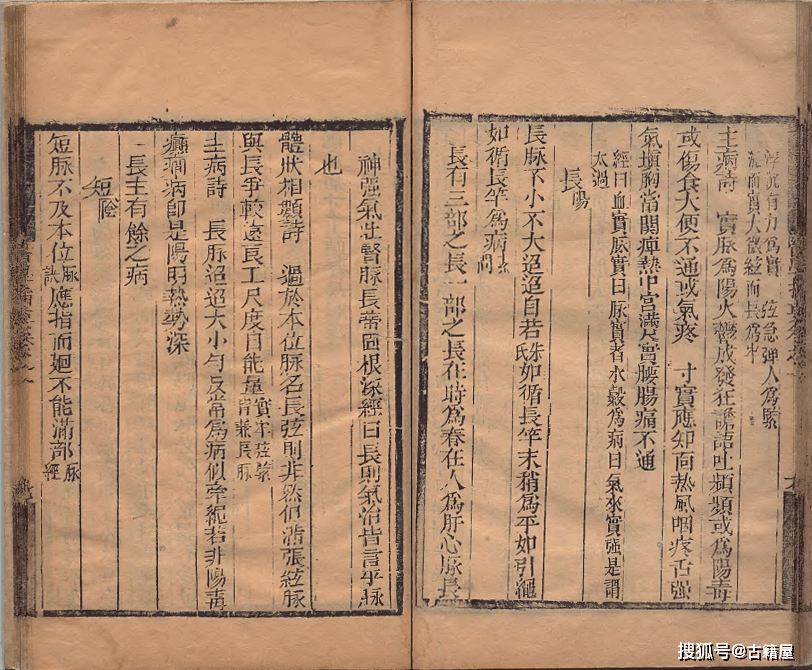 浮沉有力為實　弦急彈人為緊
沉而實大微弦而長為牢
主病詩　實脉為陽火鬱成發狂譫語吐頻頻或為陽毒
或傷食大便不通或氣疼　寸實應知面熱風咽疼舌強
氣填胸當關痺熱中宮滿尺實腰腸痛不通
經曰血實脉實曰脉實者水穀為病曰氣來實強是謂
太過
長陽
長脉不小不大迢迢自若朱氏如循長竿末稍為平如引繩
如循長竿為病素問
長有三部之長一部之長在時為春在人為肝心脉長
神強氣壯腎脉長蒂固根深經曰長則氣治皆言平脉
也
體狀相類詩　過於本位脉名長弦則非然但滿張絃脉
與長爭較遠良工尺度自能量實牢弦緊皆兼長脉
主病詩　長脉迢迢大小勻反常為病似牽繩若非陽毒
癲癇病即是陽明熱勢深
長主有餘之病
短陰
短脉不及本位脉訣應指而廻不能滿部脉經
搜狐号@古籍屋